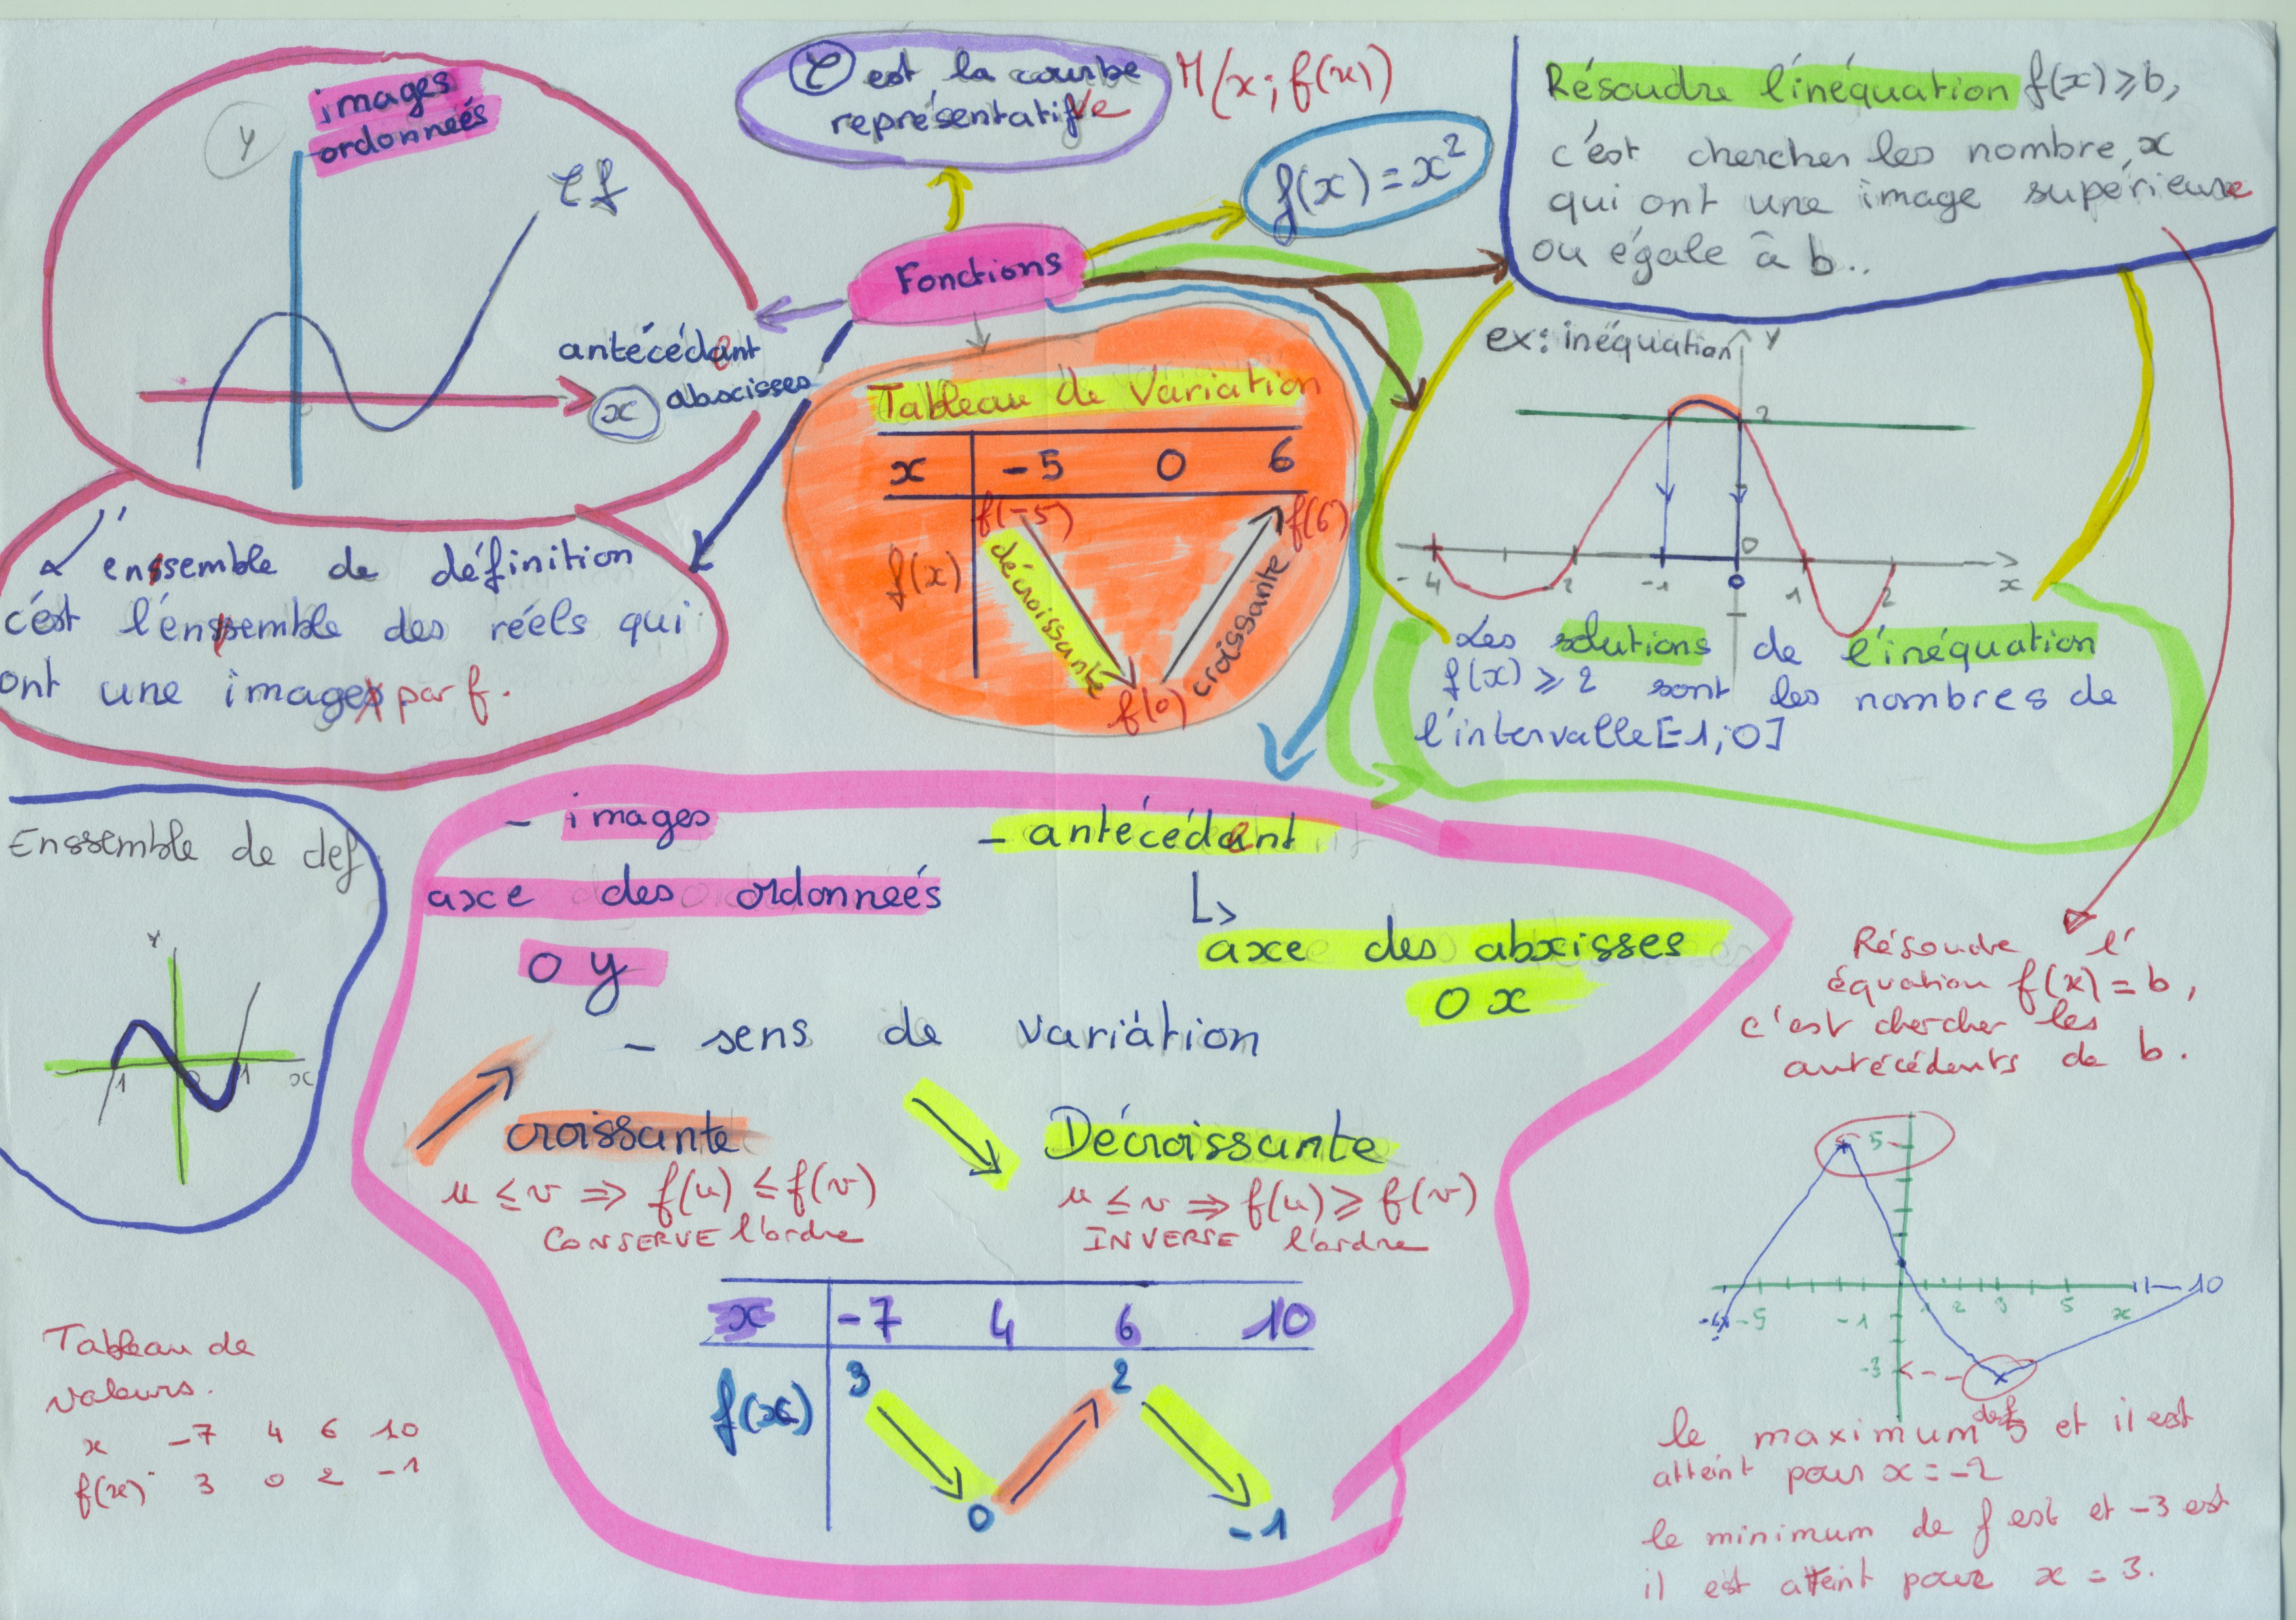 Fonctions
C est la courbe
représentative
M(x; f(x))
f(x) = x²
images
ordonneés
y
Cf
antécédent
x abscisses
L'ensemble de définition
c'est l'ensemble des réels qui
ont une image par f.
Tableau de Variation
x -5 0 6
f(-5) f(6)
f(x) décroissante croissante
f(0)
Résoudre l'inéquation f(x) ≥ b,
c'est chercher les nombre, x
qui ont une image supérieure
ou égale à b..
ex: inéquation
y
2
0
-4 -2 -1 0 1 2 x
Les solutions de l'inéquation
f(x) ≥ 2 sont les nombres de
l'intervalle [-1; 0]
Enssemble de def
y
-1 0 1 x
- images
axe des ordonneés
o y
- antécédent
axe des abxisses
o x
- sens de variation
croissante
u ≤ v ⇒ f(u) ≤ f(v)
CONSERVE l'ordre
Décroissante
u ≤ v ⇒ f(u) ≥ f(v)
INVERSE l'ordre
x -7 4 6 10
f(x) 3 2
0 -1
Tableau de
valeurs.
x -7 4 6 10
f(x) 3 0 2 -1
Résoudre l'
équation f(x) = b,
c'est chercher les
antécédents de b.
5
10
-5 -1 1 2 3 5 x
-3
le maximum de f 5 et il est
atteint pour x = -2
le minimum de f est et -3 est
il est atteint pour x = 3.